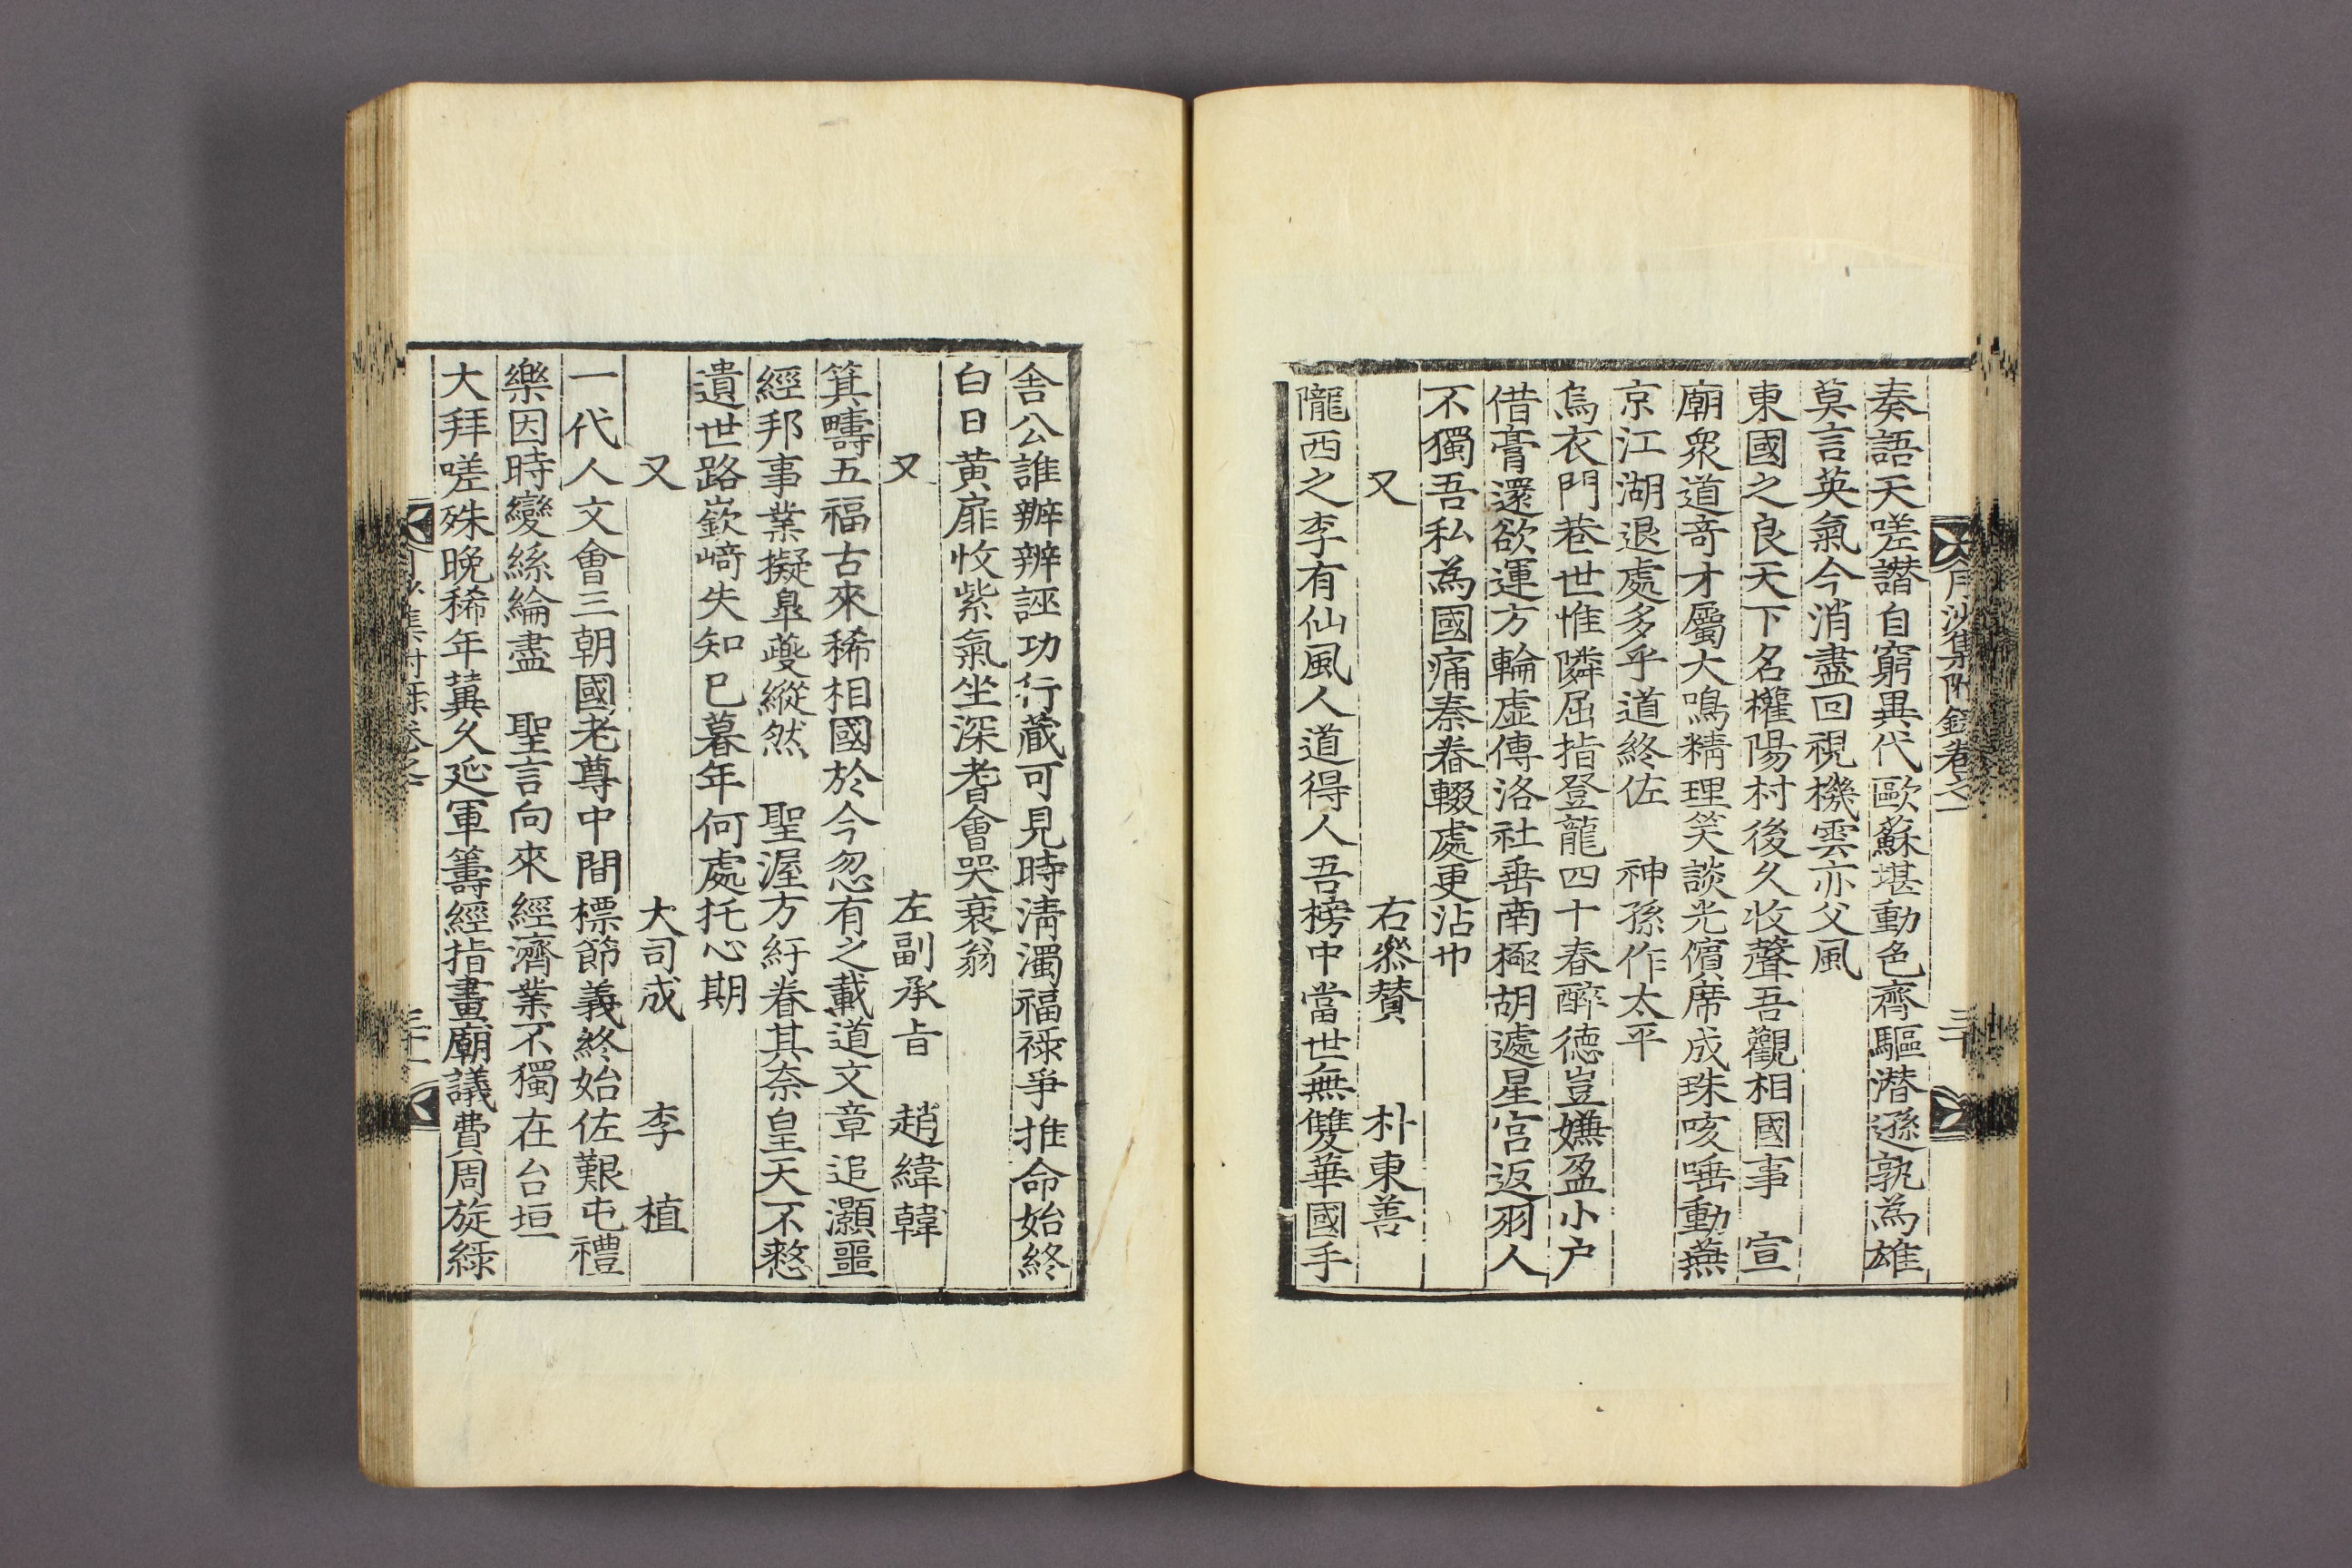 月沙集附錄卷之一
三十
奏語天嗟讃自窮異代歐蘇堪動色齊驅潜遜孰為雄
莫言英氣今消盡回視機雲亦父風
東國之良天下名權陽村後久收聲吾觀相國事　宣
廟衆道竒才屬大鳴精理笑談光儐席成珠咳唾動燕
京江湖退處多乎道終佐　神孫作太平
烏衣門巷世惟隣屈指登龍四十春醉徳豈嫌盈小户
借膏還欲運方輪虚傳洛社垂南極胡遽星宫返羽人
不獨吾私為國痛秦舂輟處更沾巾
又　右叅賛　朴東善
隴西之李有仙風人道得人吾榜中當世無雙華國手
舍公誰辦辨誣功行藏可見時淸濁福祿爭推命始終
白日黄扉收紫氣坐深耆會哭衰翁
又　左副承㫖　趙緯韓
箕疇五福古來稀相國於今忽有之載道文章追灝噩
經邦事業擬臯蘷縱然　聖渥方紆眷其奈皇天不憗
遺世路嶔﨑失知已暮年何處托心期
又　大司成　李　植
一代人文會三朝國老尊中間標節義終始佐艱屯禮
樂因時變絲綸盡　聖言向來經濟業不獨在台垣
大拜嗟殊晩稀年冀久延軍籌經指畫廟議費周旋緑
三十一